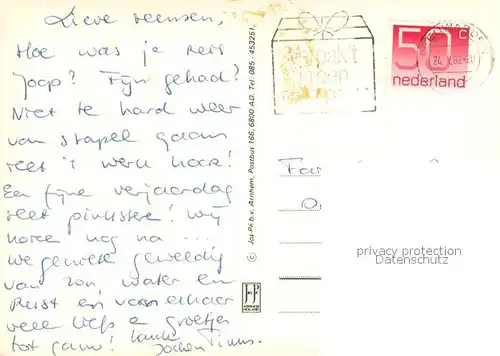 Lieve mensen,
Hoe was je reis
Joop? Fijn gehad?
Niet te hard weer
van stapel gaan
met 't werk hoor!
Een fijne verjaardag
met pinksteren! Wij
horen nog na ...
We genieten geweldig
van zon, water en
Rust en van elkaar
veel liefs & groetjes
tot gauw!
Jochem
© Jos-Pé b.v. Arnhem, Postbus 166, 6800 AD. Tel: 085 - 453251.
50c
nederland
Fa
privacy protection
Datenschutz